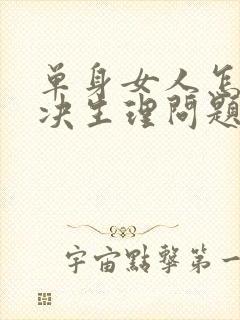 单身女人怎
决生理问题
宇宙點擊第一